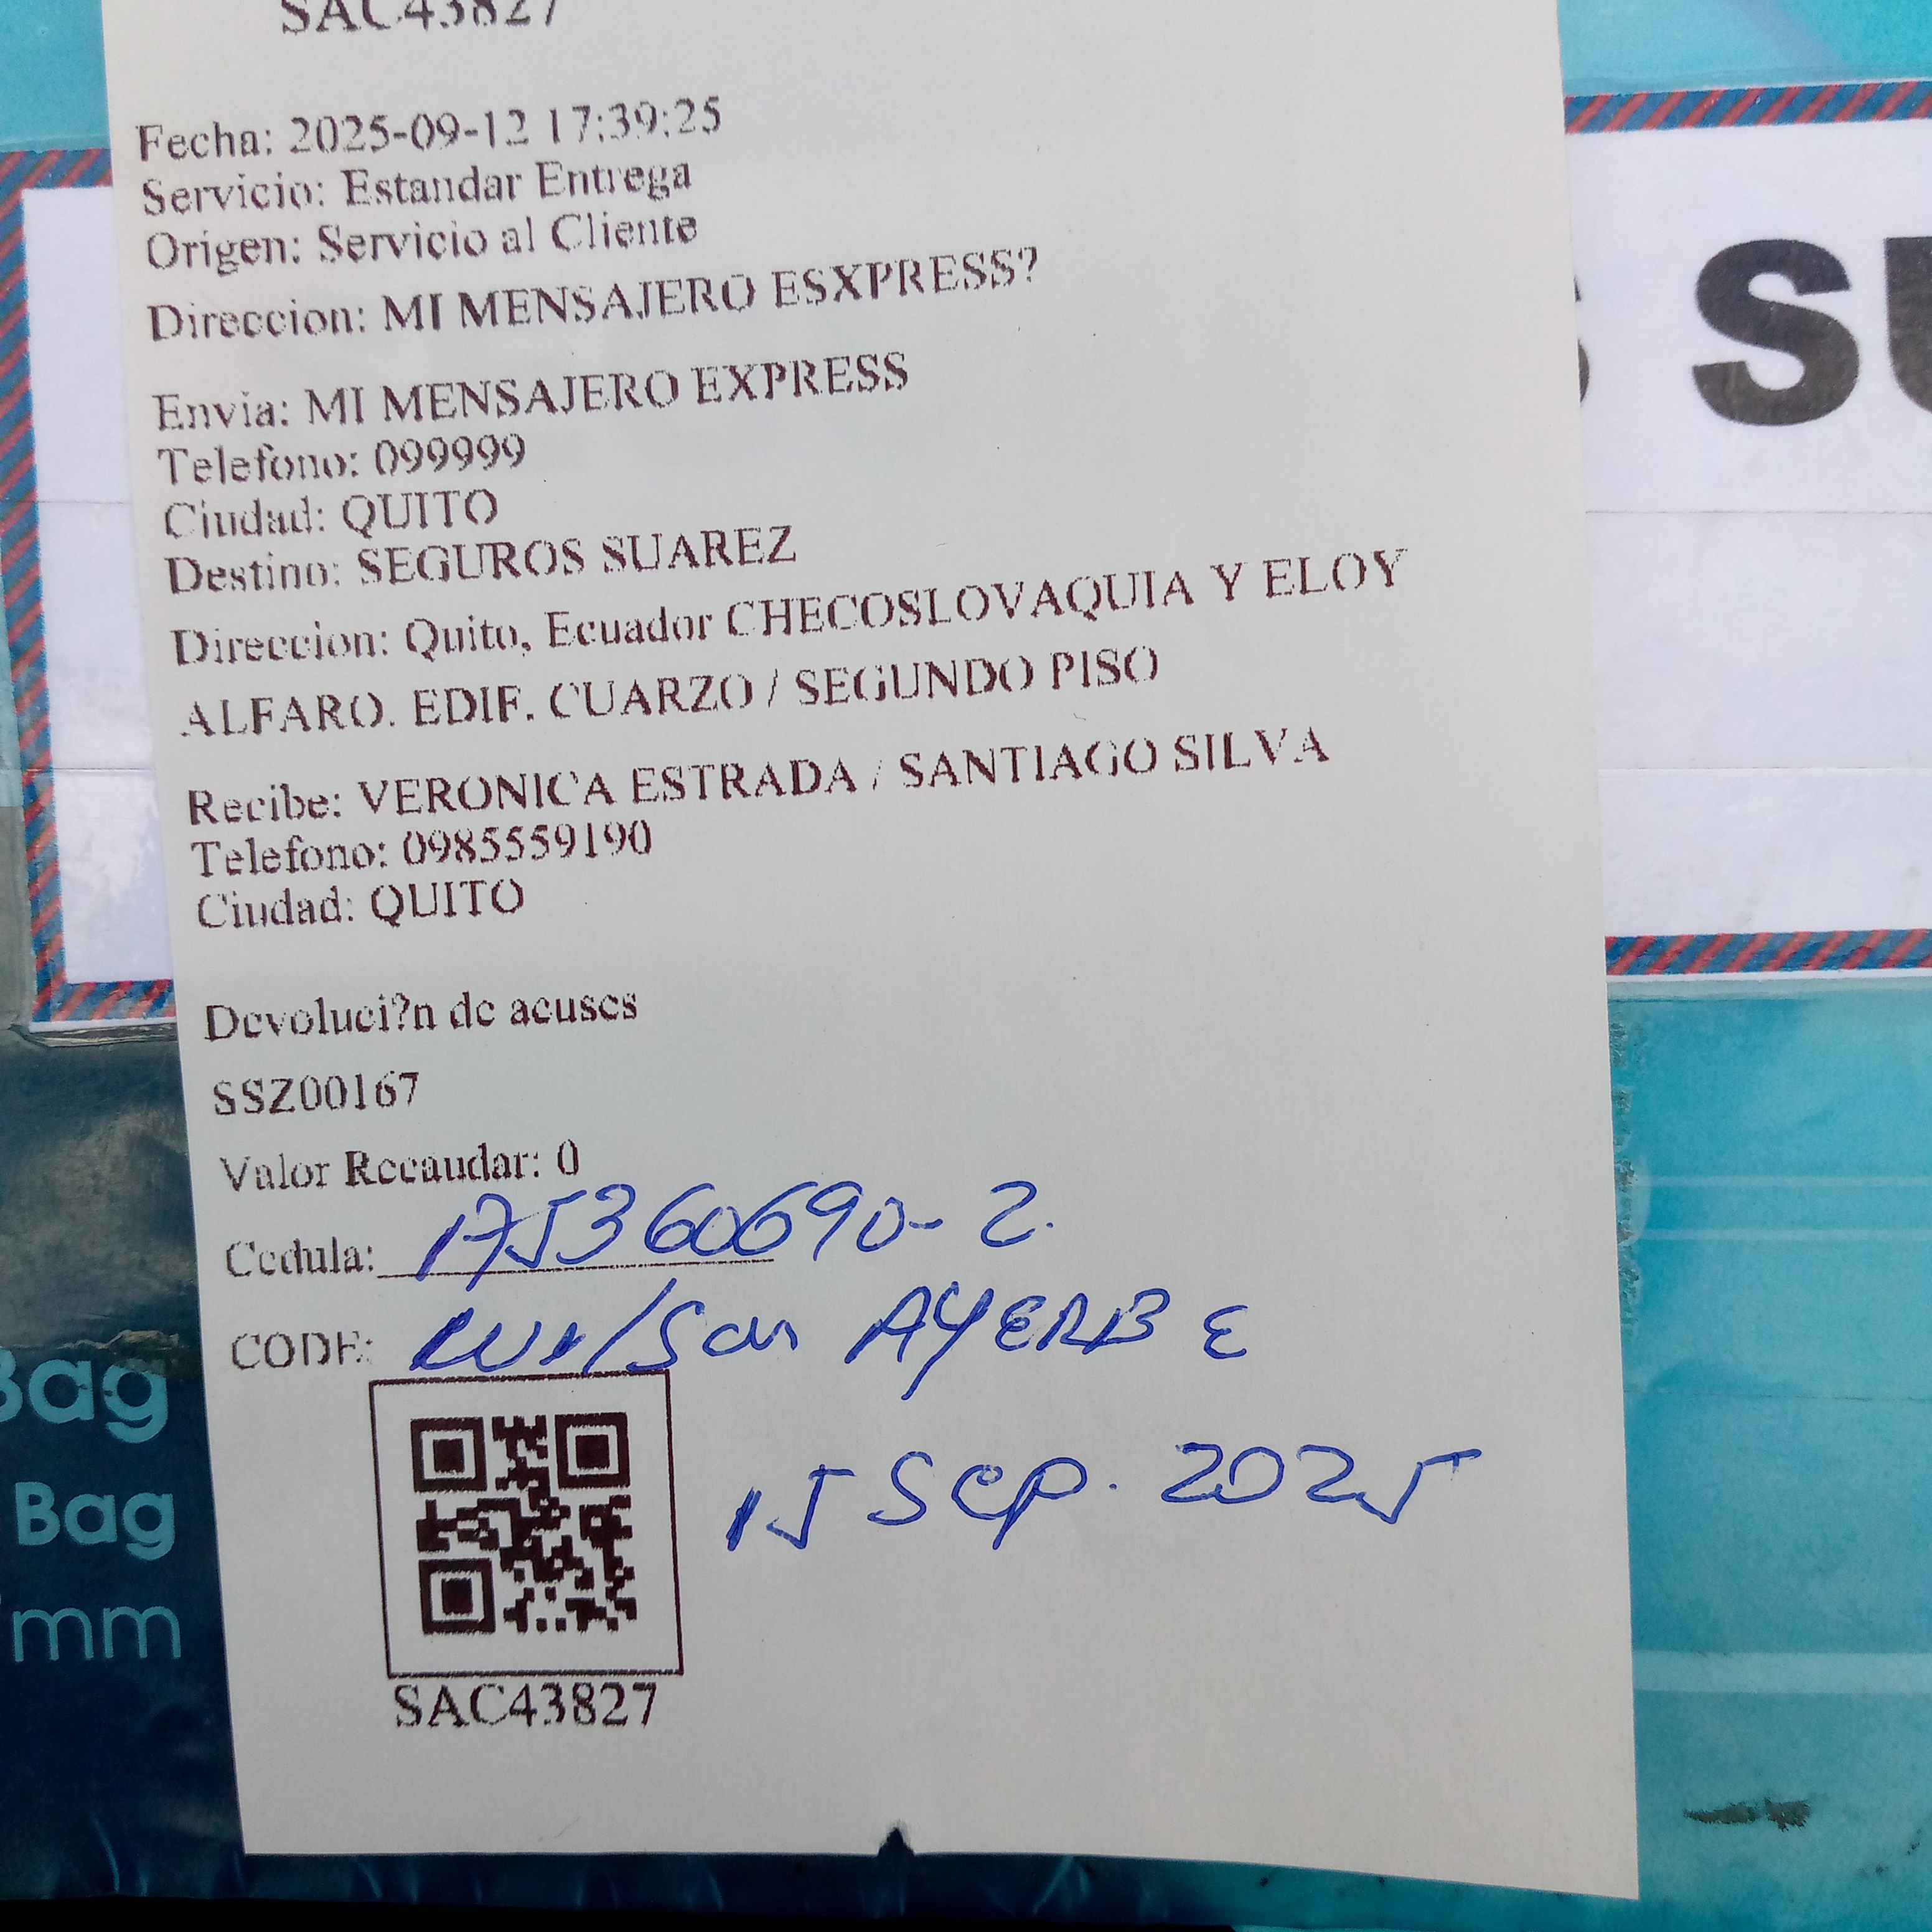 SAC43827
Fecha: 2025-09-12 17:39:25
Servicio: Estandar Entrega
Origen: Servicio al Cliente
Direccion: MI MENSAJERO ESXPRESS?
Envia: MI MENSAJERO EXPRESS
Telefono: 099999
Ciudad: QUITO
Destino: SEGUROS SUAREZ
Direccion: Quito, Ecuador CHECOSLOVAQUIA Y ELOY
ALFARO. EDIF. CUARZO / SEGUNDO PISO
Recibe: VERONICA ESTRADA / SANTIAGO SILVA
Telefono: 0985559190
Ciudad: QUITO
Devoluci?n de acuses
SSZ00167
Valor Recaudar: 0
Cedula: 175360690-2.
CODE: Wilson AYERBE
15 Sep. 2025
SAC43827
S SU
Bag
Bag
mm